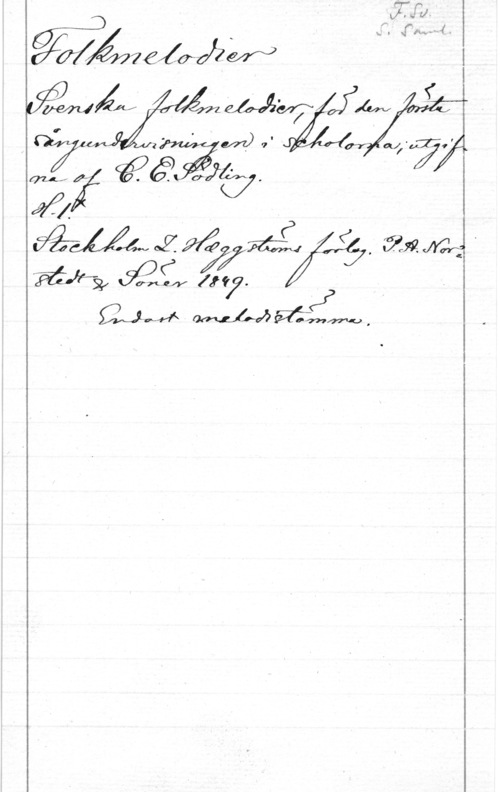 F. Sv.
S. Saml.
Folkmelodier
Svenska folkmelodier, för den första
sångundervisningen i scholorna; utgif-
na af C. E. Södling.
H. 1.
Stockholm Z. Hæggströms förlag. P. A. Nor-
stedt & Söner 1849.
Endast melodistämma.